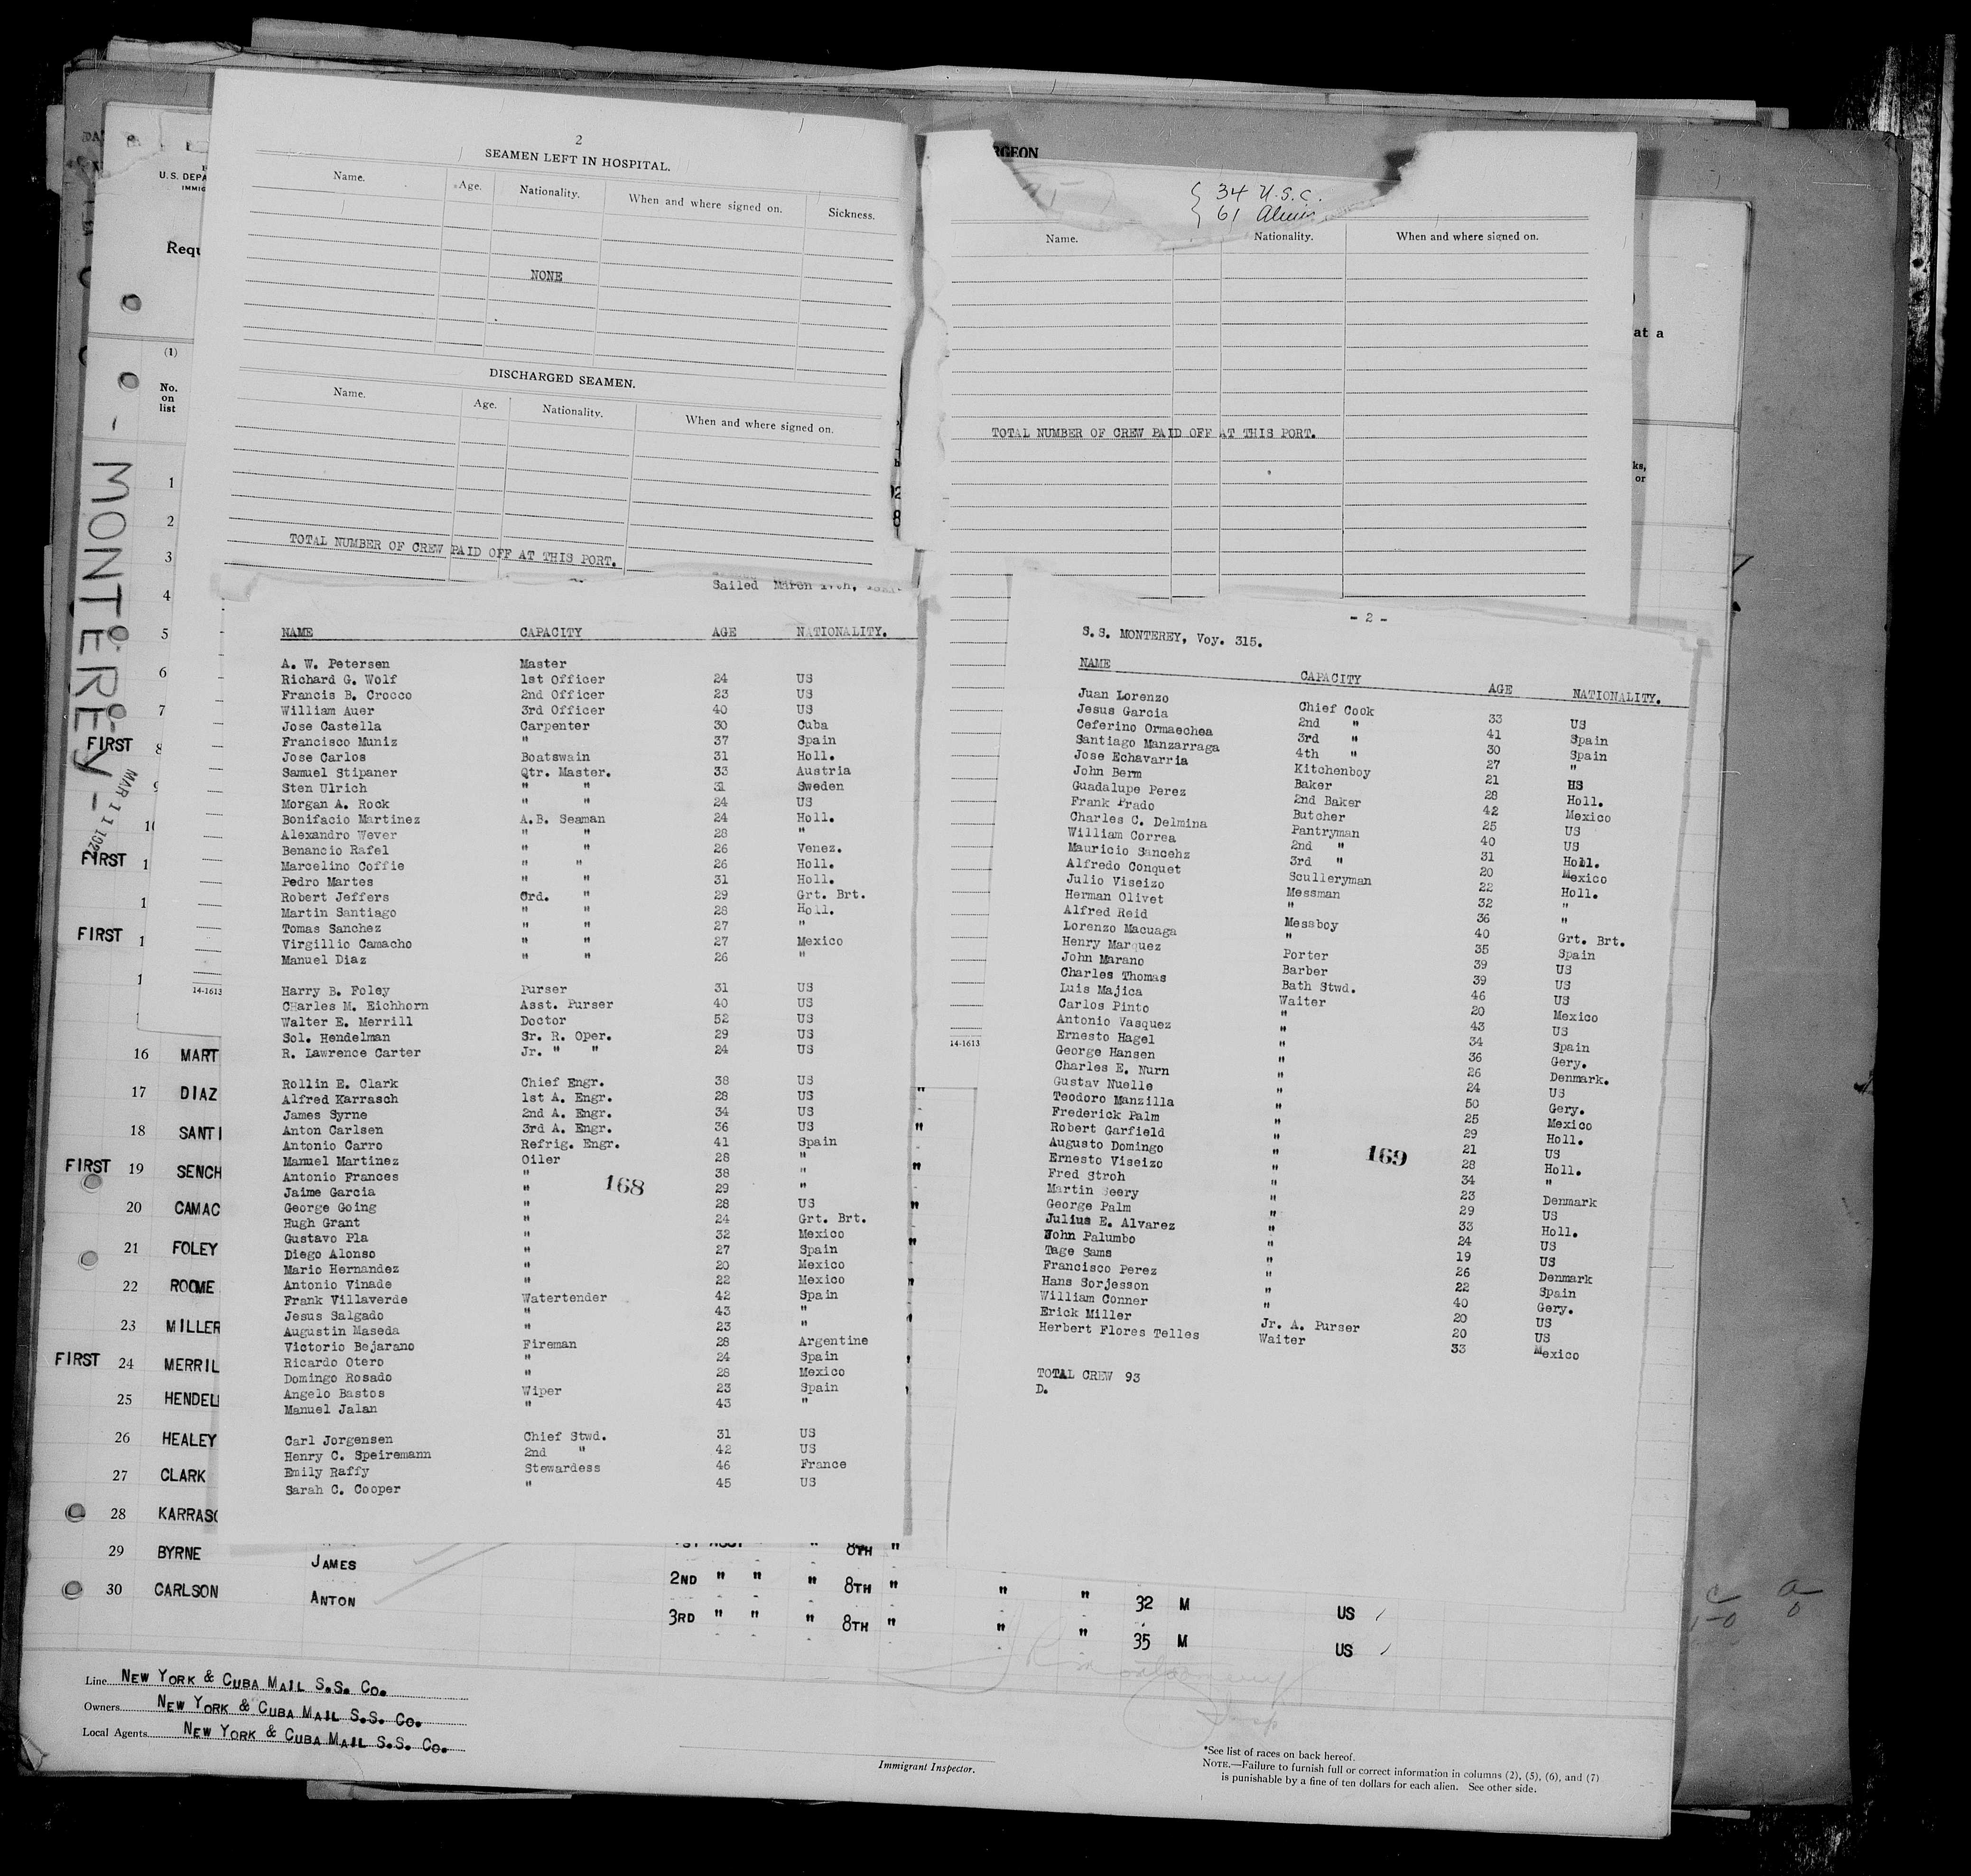 2
SEAMEN LEFT IN HOSPITAL.
Name. Age. Nationality. When and where signed on. Sickness.
NONE
DISCHARGED SEAMEN.
Name. Age. Nationality. When and where signed on.
TOTAL NUMBER OF CREW PAID OFF AT THIS PORT.
34 U.S.C.
61
Name. Nationality. When and where signed on.
TOTAL NUMBER OF CREW PAID OFF AT THIS PORT.
U.S. DEPA
IMMIG
Requ
at a
ks,
or
(1)
No.
on
list
- MONTEREY -
Sailed March
NAME CAPACITY AGE NATIONALITY.
A. W. Petersen Master
Richard G. Wolf 1st Officer 24 US
Francis B. Crocco 2nd Officer 23 US
William Auer 3rd Officer 40 US
Jose Castella Carpenter 30 Cuba
Francisco Muniz " 37 Spain
Jose Carlos Boatswain 31 Holl.
Samuel Stipaner Qtr. Master. 33 Austria
Sten Ulrich " " 31 Sweden
Morgan A. Rock " " 24 US
Bonifacio Martinez A.B. Seaman 24 Holl.
Alexandro Wever " " 28 "
Benancio Rafel " " 26 Venez.
Marcelino Coffie " " 26 Holl.
Pedro Martes " " 31 Holl.
Robert Jeffers Ord. " 29 Grt. Brt.
Martin Santiago " " 28 Holl.
Tomas Sanchez " " 27 "
Virgillio Camacho " " 27 Mexico
Manuel Diaz " " 26 "
Harry B. Foley Purser 31 US
CHarles M. Eichhorn Asst. Purser 40 US
Walter E. Merrill Doctor 52 US
Sol. Hendelman Sr. R. Oper. 29 US
R. Lawrence Carter Jr. " " 24 US
Rollin E. Clark Chief Engr. 38 US
Alfred Karrasch 1st A. Engr. 28 US
James Syrne 2nd A. Engr. 34 US
Anton Carlsen 3rd A. Engr. 36 US
Antonio Carro Refrig. Engr. 41 Spain
Manuel Martinez Oiler 28 "
Antonio Frances " 38 "
Jaime Garcia " 29 "
George Going " 28 US
Hugh Grant " 24 Grt. Brt.
Gustavo Pla " 32 Mexico
Diego Alonso " 27 Spain
Mario Hernandez " 20 Mexico
Antonio Vinade " 22 Mexico
Frank Villaverde Watertender 42 Spain
Jesus Salgado " 43 "
Augustin Maseda " 23 "
Victorio Bejarano Fireman 28 Argentine
Ricardo Otero " 24 Spain
Domingo Rosado " 28 Mexico
Angelo Bastos Wiper 23 Spain
Manuel Jalan " 43 "
Carl Jorgensen Chief Stwd. 31 US
Henry C. Speiremann 2nd " 42 US
Emily Raffy Stewardess 46 France
Sarah C. Cooper " 45 US
168
- 2 -
S.S. MONTEREY, Voy. 315.
NAME CAPACITY AGE NATIONALITY.
Juan Lorenzo Chief Cook 33 US
Jesus Garcia 2nd " 41 Spain
Ceferino Ormaechea 3rd " 30 Spain
Santiago Manzarraga 4th " 27 "
Jose Echavarria Kitchenboy 21 US
John Berm Baker 28 Holl.
Guadalupe Perez 2nd Baker 42 Mexico
Frank Prado Butcher 25 US
Charles C. Delmina Pantryman 40 US
William Correa 2nd " 31 Holl.
Mauricio Sancehz 3rd " 20 Mexico
Alfredo Conquet Sculleryman 22 Holl.
Julio Viseizo Messman 32 "
Herman Olivet " 36 "
Alfred Reid Messboy 40 Grt. Brt.
Lorenzo Macuaga " 35 Spain
Henry Marquez Porter 39 US
John Marano Barber 39 US
Charles Thomas Bath Stwd. 46 US
Luis Majica Waiter 20 Mexico
Carlos Pinto " 43 US
Antonio Vasquez " 34 Spain
Ernesto Hagel " 36 Gery.
George Hansen " 26 Denmark.
Charles E. Nurn " 24 US
Gustav Nuelle " 50 Gery.
Teodoro Manzilla " 25 Mexico
Frederick Palm " 29 Holl.
Robert Garfield " 21 US
Augusto Domingo " 28 Holl.
Ernesto Viseizo " 34 "
Fred Stroh " 23 Denmark
Martin Seery " 29 US
George Palm " 33 Holl.
Julius E. Alvarez " 24 US
John Palumbo " 19 US
Tage Sams " 26 Denmark
Francisco Perez " 22 Spain
Hans Sorjesson " 40 Gery.
William Conner " 20 US
Erick Miller Jr. A. Purser 20 US
Herbert Flores Telles Waiter 33 Mexico
TOTAL CREW 93
D.
169
14-1613
14-1613
1
2
3
4
5
6
7
FIRST 8
FIRST
FIRST
16 MART
17 DIAZ
18 SANTI
FIRST 19 SENCH
20 CAMAC
21 FOLEY
22 ROOME
23 MILLER
FIRST 24 MERRIL
25 HENDEL
26 HEALEY
27 CLARK
28 KARRASC
29 BYRNE JAMES 2ND " " " 8TH " " " 32 M US
30 CARLSON ANTON 3RD " " " 8TH " " " 35 M US
Line NEW YORK & CUBA MAIL S.S. CO.
Owners NEW YORK & CUBA MAIL S.S. CO.
Local Agents NEW YORK & CUBA MAIL S.S. CO.
Immigrant Inspector.
*See list of races on back hereof.
NOTE.—Failure to furnish full or correct information in columns (2), (5), (6), and (7)
is punishable by a fine of ten dollars for each alien. See other side.